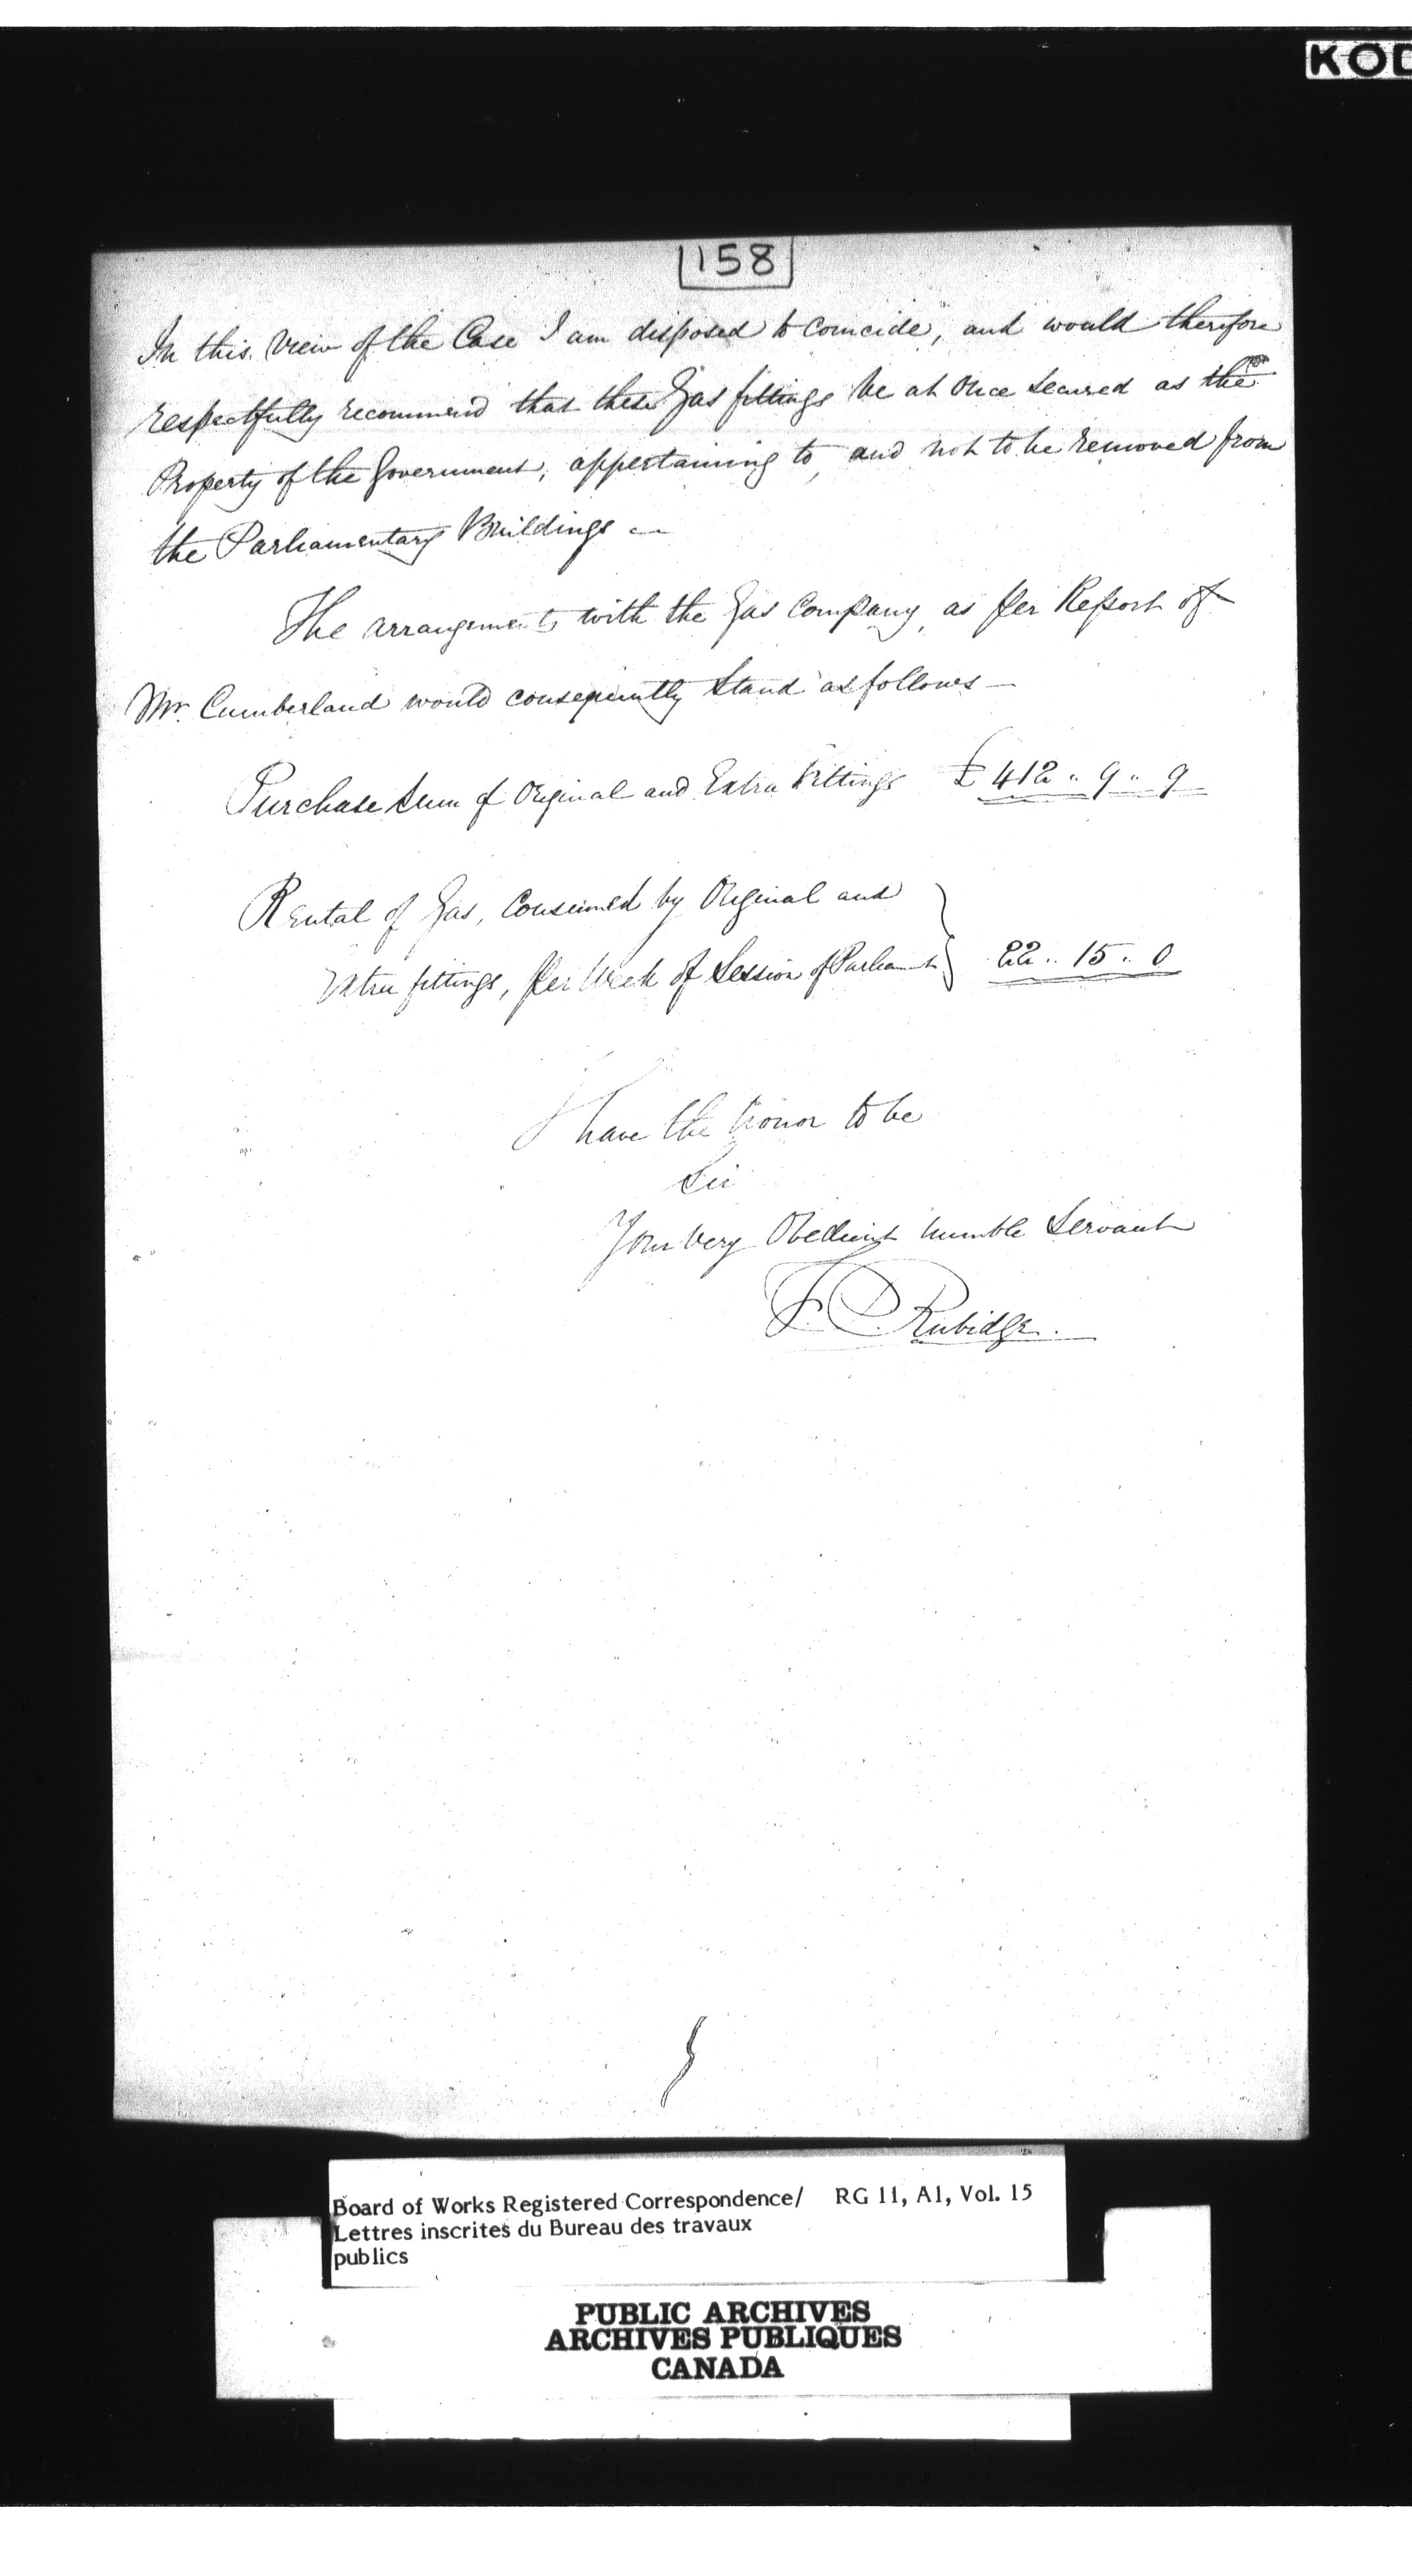 KOD
158
In this View of the Case I am disposed to Coincide, and would therefore
respectfully recommend that these Gas fittings be at Once Secured as the
Property of the Government, appertaining to, and not to be removed from
the Parliamentary Buildings —
The arrangements with the Gas Company, as per Report of
Mr. Cumberland would consequently Stand as follows —
Purchase Sum of Original and Extra Fittings £ 412 .. 9 .. 9
Rental of Gas, Consumed by Original and
Extra fittings, per Week of Session of Parliament } 22 .. 15 .. 0
I have the honor to be
Sir
Your Very Obedient humble Servant
F. P. Rubidge.
Board of Works Registered Correspondence/ RG 11, A1, Vol. 15
Lettres inscrites du Bureau des travaux
publics
PUBLIC ARCHIVES
ARCHIVES PUBLIQUES
CANADA